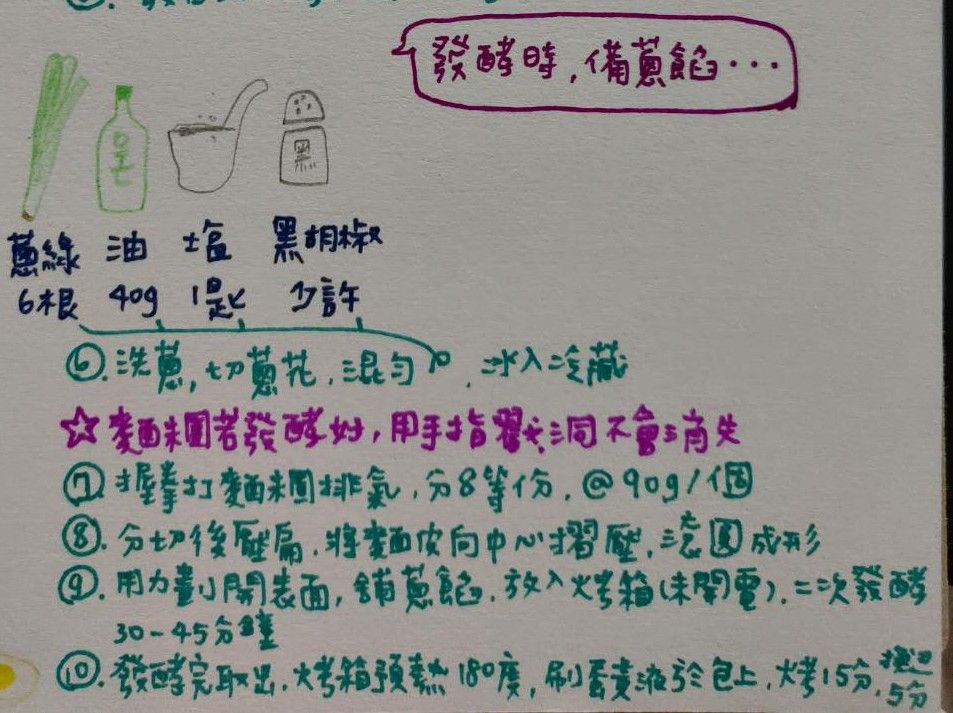 發酵時,備蔥餡…
黑
蔥綠 油 塩 黑胡椒
6根 40g 1匙 少許
⑥.洗蔥,切蔥花,混勻,冰入冷藏
☆麵糰若發酵好,用手指戳入洞不會消失
⑦.握拳打麵糰排氣,分8等份,@90g/個
⑧.分切後壓扁,將麵皮向中心摺壓,滾圓成形
⑨.用力劃開表面,舖蔥餡,放入烤箱(未開電),二次發酵
30-45分鐘
⑩.發酵完取出,烤箱預熱180度,刷蛋黃液於包上,烤15分,換邊
5分